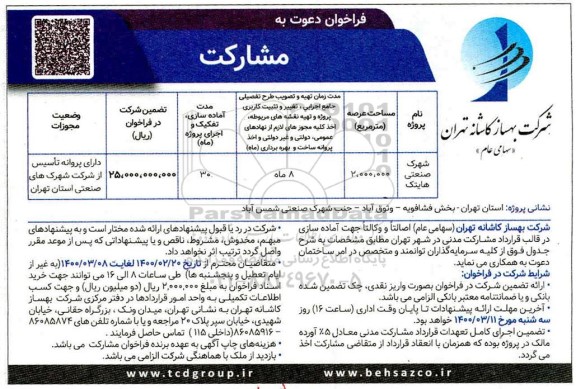 فراخوان دعوت به
مشارکت
شرکت بهساز کاشانه تهران
«سهامی عام»
نام پروژه
مساحت عرصه (مترمربع)
مدت زمان تهیه و تصویب طرح تفصیلی
جامع اجرایی، تغییر و تثبیت کاربری
پروژه و تهیه نقشه های مربوطه،
اخذ کلیه مجوز های لازم از نهادهای
عمومی، دولتی و غیر دولتی و اخذ
پروانه ساخت و بهره برداری (ماه)
مدت آماده سازی، تفکیک و اجرای پروژه (ماه)
تضمین شرکت در فراخوان (ریال)
وضعیت مجوزات
شهرک صنعتی هایتک
۲,۰۰۰,۰۰۰
۸ ماه
۳۰
۲۵,۰۰۰,۰۰۰,۰۰۰
دارای پروانه تأسیس از شرکت شهرک های صنعتی استان تهران
نشانی پروژه: استان تهران - بخش فشافویه - وثوق آباد - جنب شهرک صنعتی شمس آباد
شرکت بهساز کاشانه تهران (سهامی عام) اصالتاً و وکالتاً جهت آماده سازی
در قالب قرارداد مشارکت مدنی در شهر تهران مطابق مشخصات به شرح
جدول فوق از کلیه سرمایه‌گذاران توانمند و متخصص در امر ساختمان
دعوت به همکاری می نماید.
شرایط شرکت در فراخوان:
• ارائه تضمین شرکت در فراخوان بصورت واریز نقدی، چک تضمین شده
بانکی و یا ضمانتنامه معتبر بانکی الزامی می باشد.
• آخرین مهلت ارائه پیشنهادات تا پایان وقت اداری (ساعت ۱۶) روز
سه شنبه مورخ ۱۴۰۰/۰۳/۱۱ خواهد بود.
• تضمین اجرای کامل تعهدات قرارداد مشارکت مدنی معادل ۵٪ آورده
مالک در پروژه بوده که همزمان با انعقاد قرارداد از متقاضی مشارکت اخذ
می گردد.
• شرکت در رد یا قبول پیشنهادهای ارائه شده مختار است و به پیشنهادهای
مبهم، مخدوش، مشروط، ناقص و یا پیشنهاداتی که پس از موعد مقرر
واصل گردد ترتیب اثر نخواهد داد.
• متقاضیان محترم از تاریخ ۱۴۰۰/۰۲/۲۰ لغایت ۱۴۰۰/۰۳/۰۸ (به غیر از
ایام تعطیل و پنجشنبه ها) طی ساعات ۸ الی ۱۶ می توانند جهت خرید
اسناد فراخوان به مبلغ ۲,۰۰۰,۰۰۰ ریال (دو میلیون ریال) و جهت کسب
اطلاعات تکمیلی به واحد امور قراردادها در دفتر مرکزی شرکت بهساز
کاشانه تهران به نشانی تهران، میدان ونک، بزرگراه حقانی، خیابان
شهیدی، خیابان سپر پلاک ۲۰ مراجعه و یا با شماره تلفن های ۸۶۰۸۵۸۷۴
- ۸۶۰۸۵۹۱۶ (داخلی ۱۱۵) تماس حاصل فرمایند.
• هزینه‌های چاپ آگهی به عهده برنده فراخوان مشارکت می باشد.
• بازدید از ملک با هماهنگی شرکت الزامی می باشد.
www.tcdgroup.ir
www.behsazco.ir